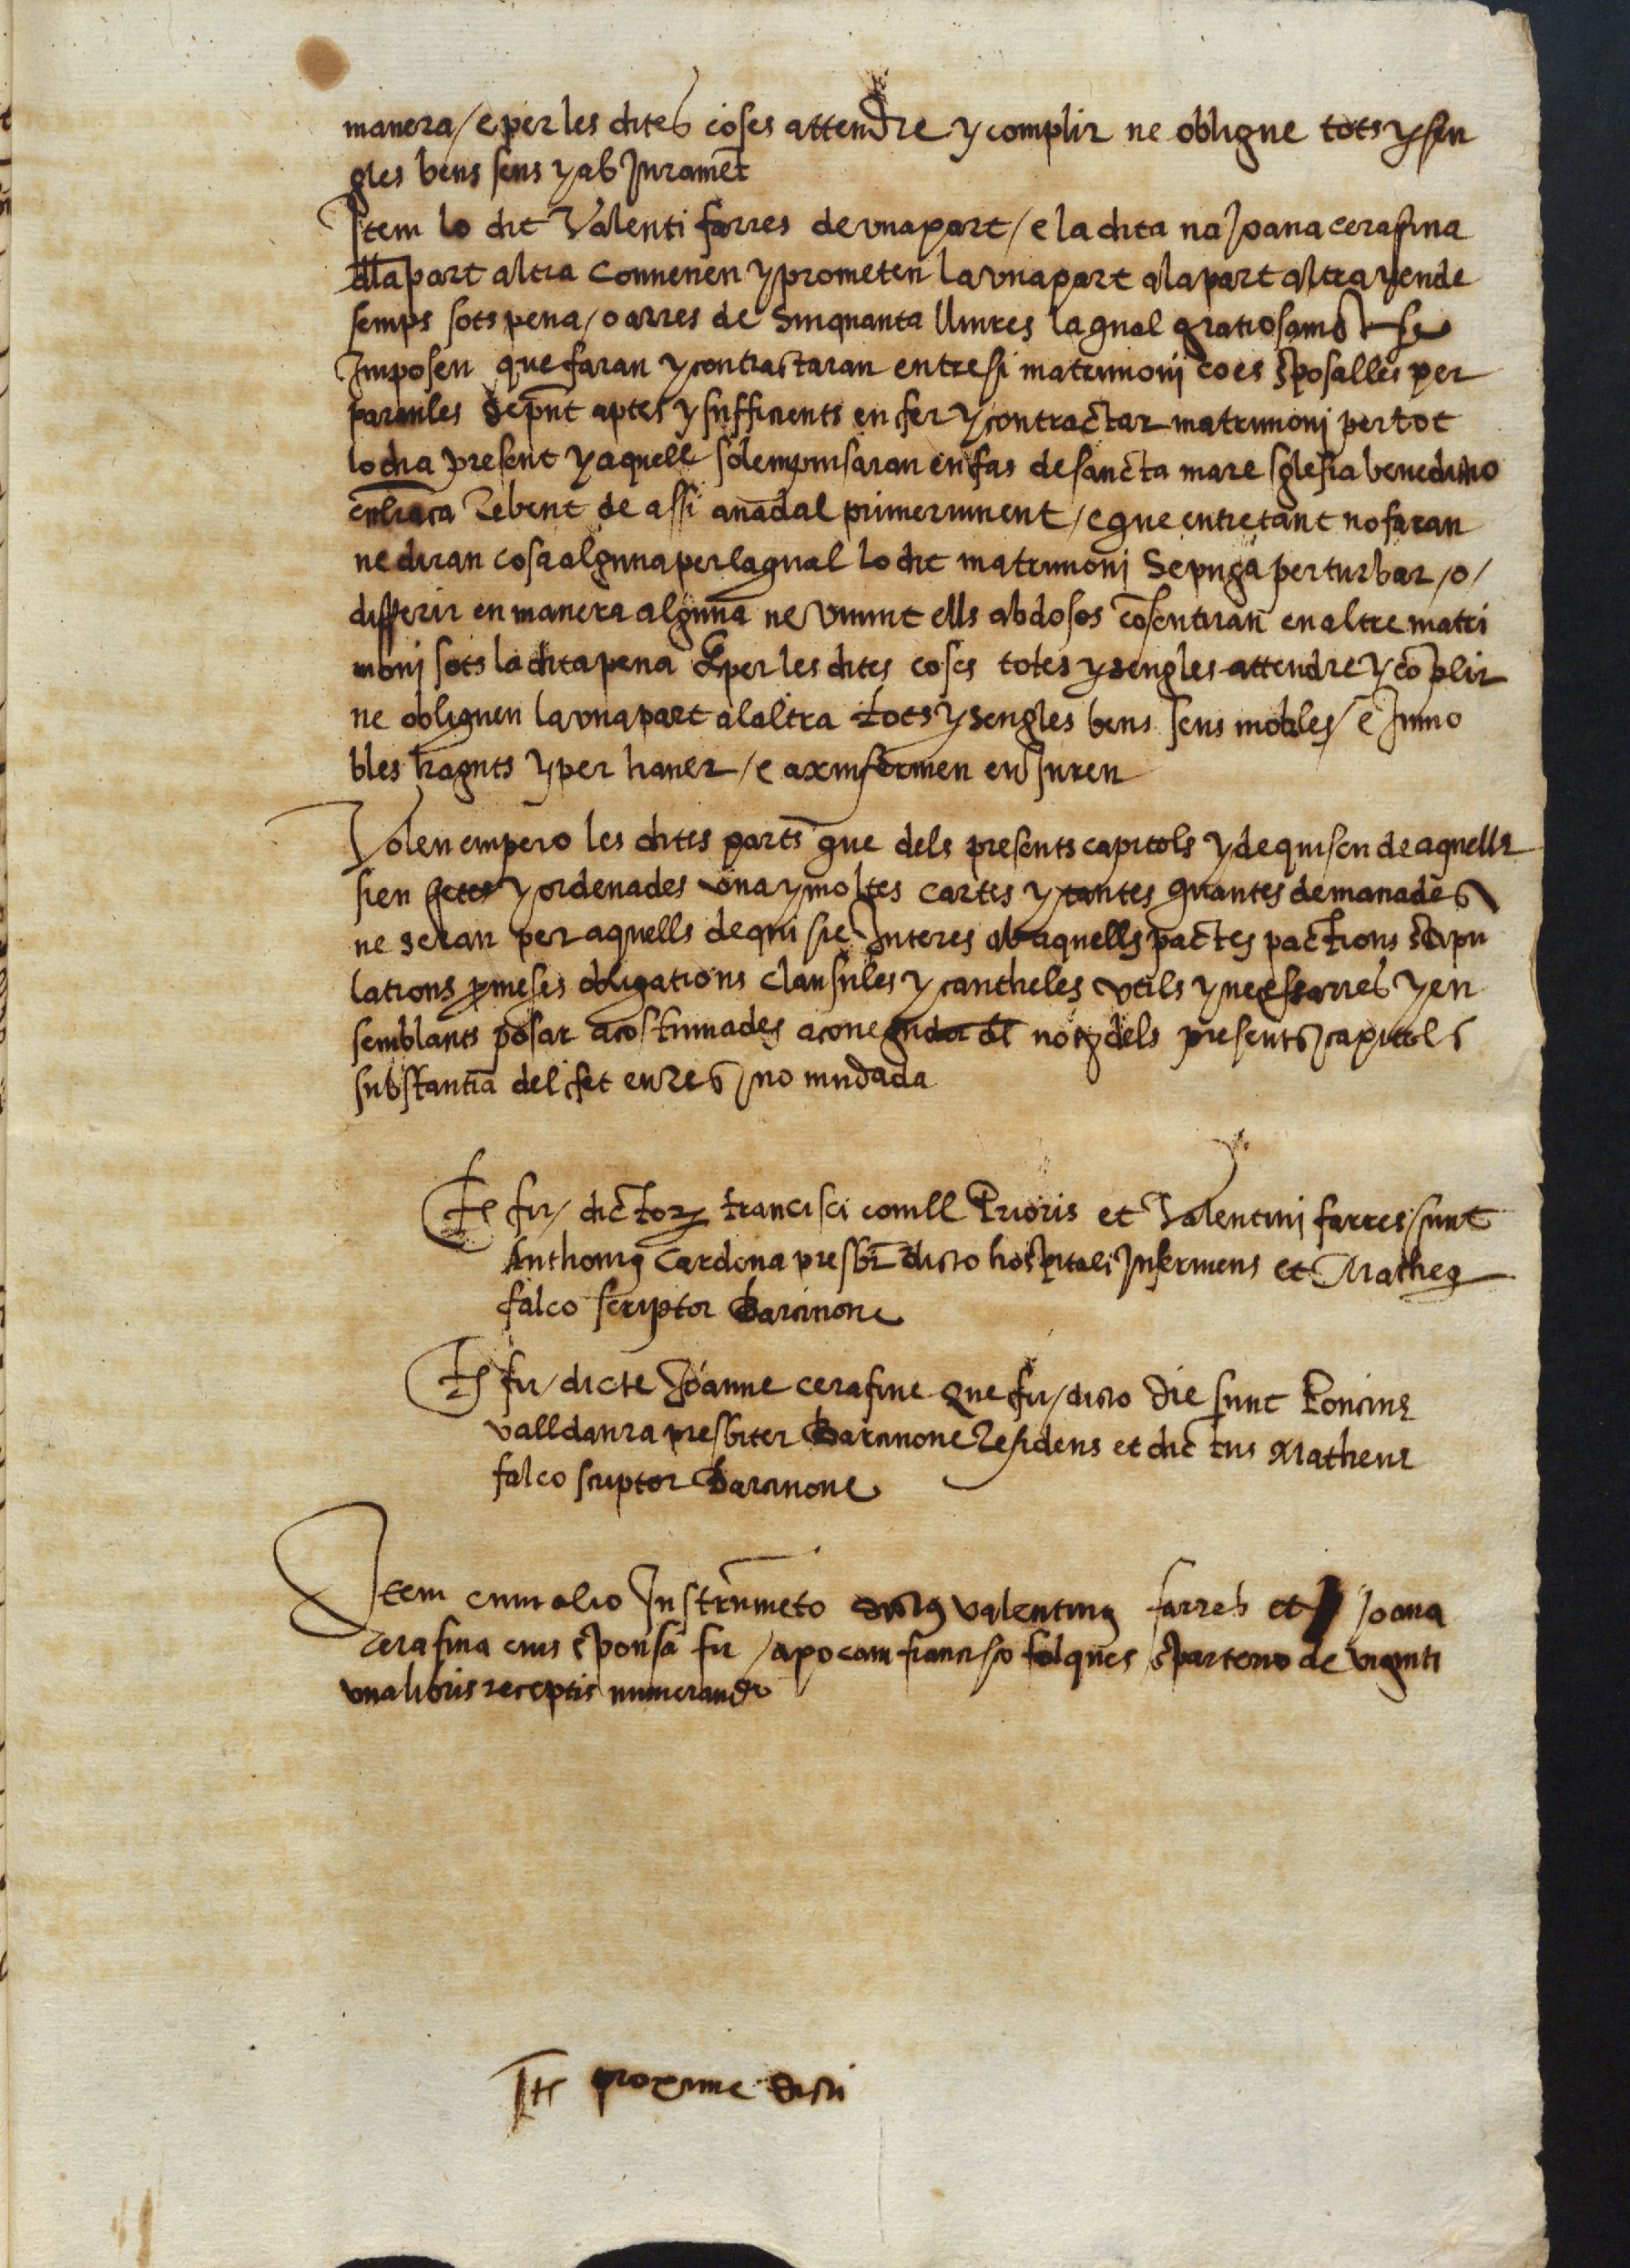 manera / e per les dites coses attendre y complir ne obligue tots y sen
gles bens seus y ab Jurament
Item lo dit Valenti farres de vna part / e la dita na Joana cerafina
dla part altra Conuenen y prometen la vna part a la part altra y ende
semps sots pena / o arres de Sinquanta lliures la qual gratiosament se
Imposen que faran y contractaran entre si matrimonj co es sposalles per
paraules de pnt aptes y sufficients en fer y contractar matrimonj per tot
lo dia present y aquell solempnisaran en fas de sancta mare sglesia benedictio
en Rebent de assi a nadal primer vinent / e que entretant no faran
ne diran cosa alguna per la qual lo dit matrimonj Se puga perturbar / o /
differir en manera alguna ne viuint ells abdosos cosentiran en altre matri
monj sots la dita pena E per les dites coses totes y sengles attendre y coplir
ne obliguen la vna part a laltra tots y sengles bens seus mobles / e Immo
bles haguts y per hauer / e axi u fermen e u Juren
Volen empero les dites parts que dels presents capitols y de quiscu de aquells
sien fetes y ordenades vna y moltes cartes y tantes quantes demanades
ne seran per aquells de qui sie Interes ab aquells pactes pactions stipu
lations pmeses obligations clausules y cautheles vtils y necessaries y en
semblants posar acostumades a coneguda del not dels presents capitols
substantia del fet en res no mudada
Ts fir / dictor francisci conill Prioris et Valentini farres / sunt
Anthonius Cardona presbr dicto hospitali Inseruiens et Matheus
falco scriptor Barcinone
Ts fir / dicte Joanne cerafine Que fir / dicto die sunt Poncius
valldaura presbiter Barcinone Residens et dictus Matheus
falco scriptor Barcinone
Item cum alio Instrumeto dictus valentinus farres et Joana
cerafina eius sponsa fir / apocam francisco folques sparterio de viginti
vna libris receptis numerando
Ts proxime dicti